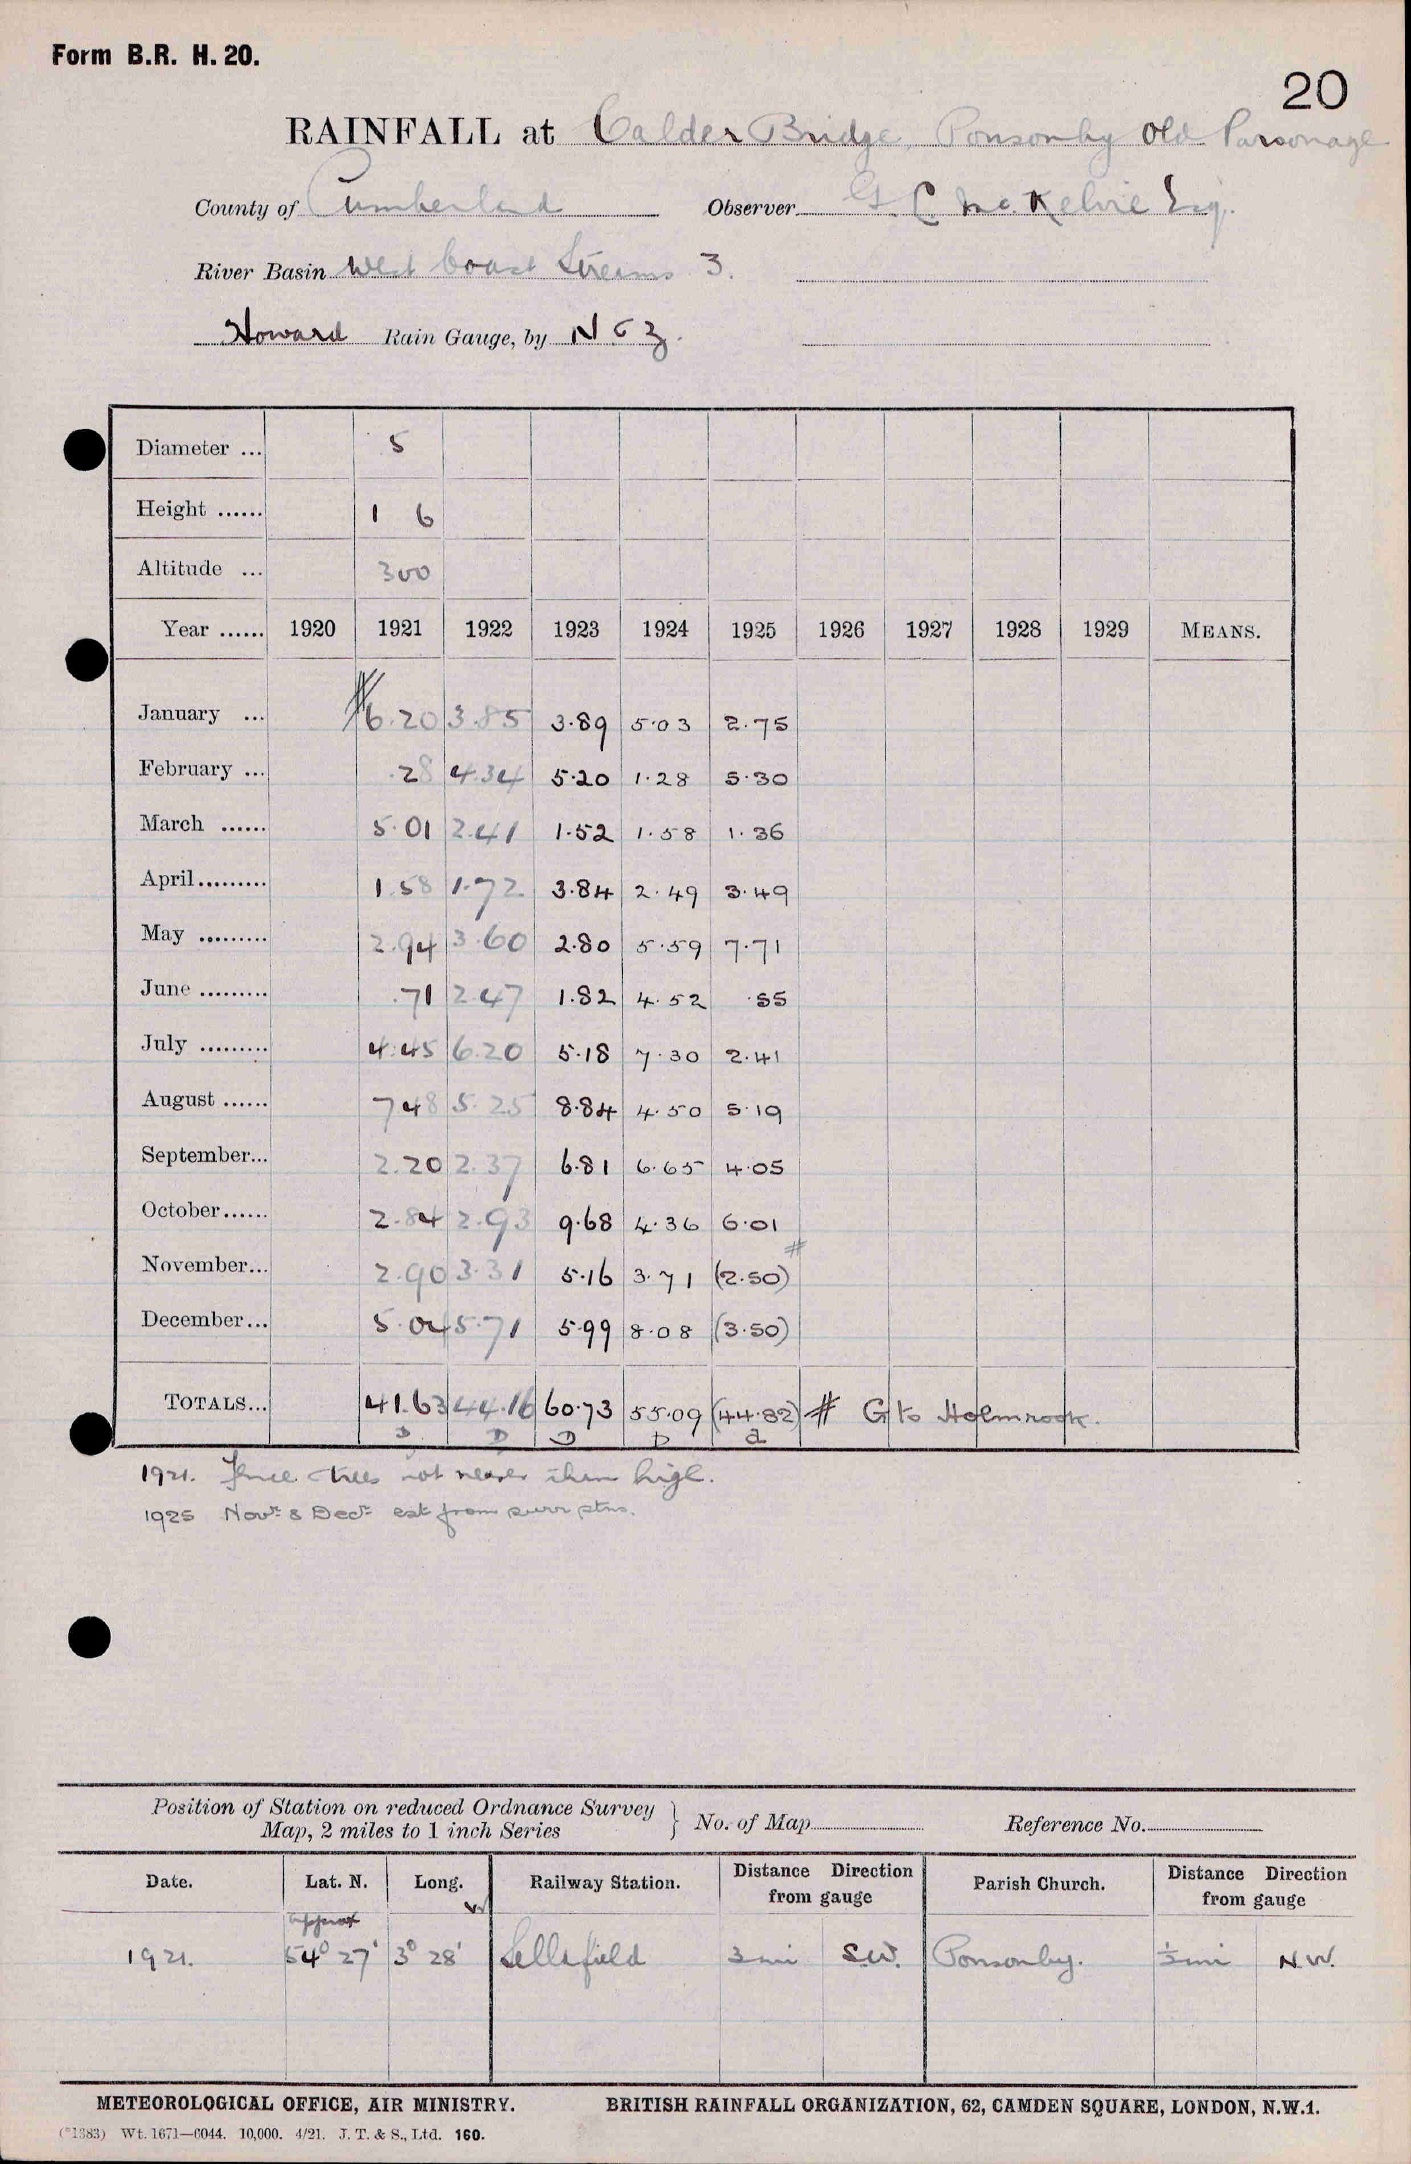 Form B.R. H. 20.
20
RAINFALL at Calder Bridge, Ponsonby Old Parsonage
County of Cumberland Observer G. C. McKelvie Esq.
River Basin West Coast Streams 3.
Howard Rain Gauge, by N & Z.
Diameter ... 5
Height ...... 1 6
Altitude ... 300
Year ...... 1920 1921 1922 1923 1924 1925 1926 1927 1928 1929 MEANS.
January ... # 6.20 3.85 3.89 5.03 2.75
February ... .28 4.34 5.20 1.28 5.30
March ...... 5.01 2.41 1.52 1.58 1.36
April......... 1.58 1.72 3.84 2.49 3.49
May ......... 2.94 3.60 2.80 5.59 7.71
June ......... .71 2.47 1.82 4.52 .55
July ......... 4.45 6.20 5.18 7.30 2.41
August ...... 7.48 5.25 8.84 4.50 5.19
September... 2.20 2.37 6.81 6.65 4.05
October...... 2.84 2.93 9.68 4.36 6.01
November... 2.90 3.31 5.16 3.71 (2.50) #
December... 5.04 5.71 5.99 8.08 (3.50)
TOTALS... 41.63 44.16 60.73 55.09 (44.82) # G to Holmrook.
D D D a
1921. Fence & trees not nearer than high.
1925 Novr & Decr est from surr stns.
Position of Station on reduced Ordnance Survey Map, 2 miles to 1 inch Series } No. of Map Reference No.
Date. Lat. N. Long. W Railway Station. Distance Direction from gauge Parish Church. Distance Direction from gauge
approx
1921. 54° 27' 3° 28' Sellafield 3 mi S.W. Ponsonby. ½ mi N.W.
METEOROLOGICAL OFFICE, AIR MINISTRY. BRITISH RAINFALL ORGANIZATION, 62, CAMDEN SQUARE, LONDON, N.W.1.
(*1383) Wt. 1671—6044. 10,000. 4/21. J. T. & S., Ltd. 160.